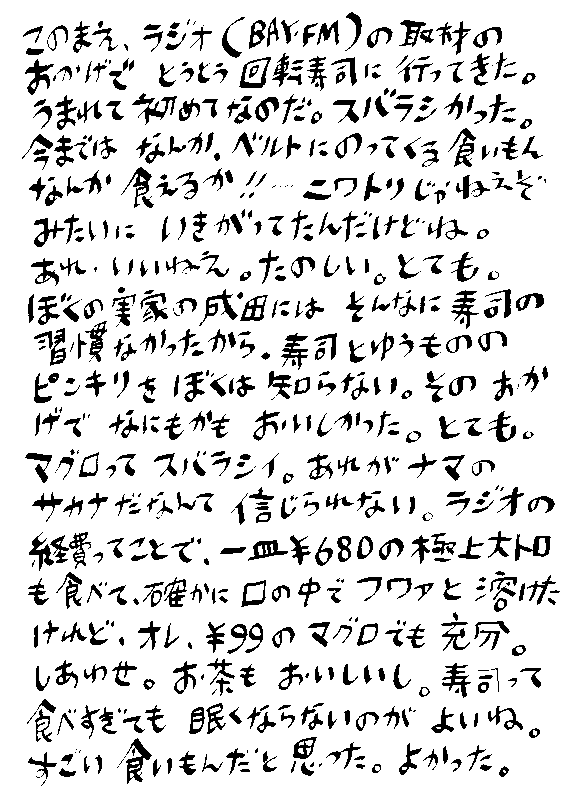 このまえ、ラジオ(BAY・FM)の取材の
おかげで とうとう回転寿司に行ってきた。
うまれて初めてなのだ。スバラシかった。
今までは なんか、ベルトにのってくる食いもん
なんか 食えるか!!…ニワトリじゃねえぞ
みたいに いきがってたんだけどね。
あれ・いいねえ。たのしい。とても。
ぼくの実家の成田には そんなに寿司の
習慣なかったから、寿司とゆうものの
ピンキリを ぼくは知らない。そのおか
げで なにもかも おいしかった。とても。
マグロって スバラシイ。あれがナマの
サカナだなんて 信じられない。ラジオの
経費ってことで、一皿¥680の極上大トロ
も食べて、確かに 口の中で フワァと溶けた
けれど、オレ、¥99のマグロでも 充分。
しあわせ。お茶も おいしいし。寿司って
食べすぎても 眠くならないのが よいね。
すごい 食いもんだと思った。よかった。